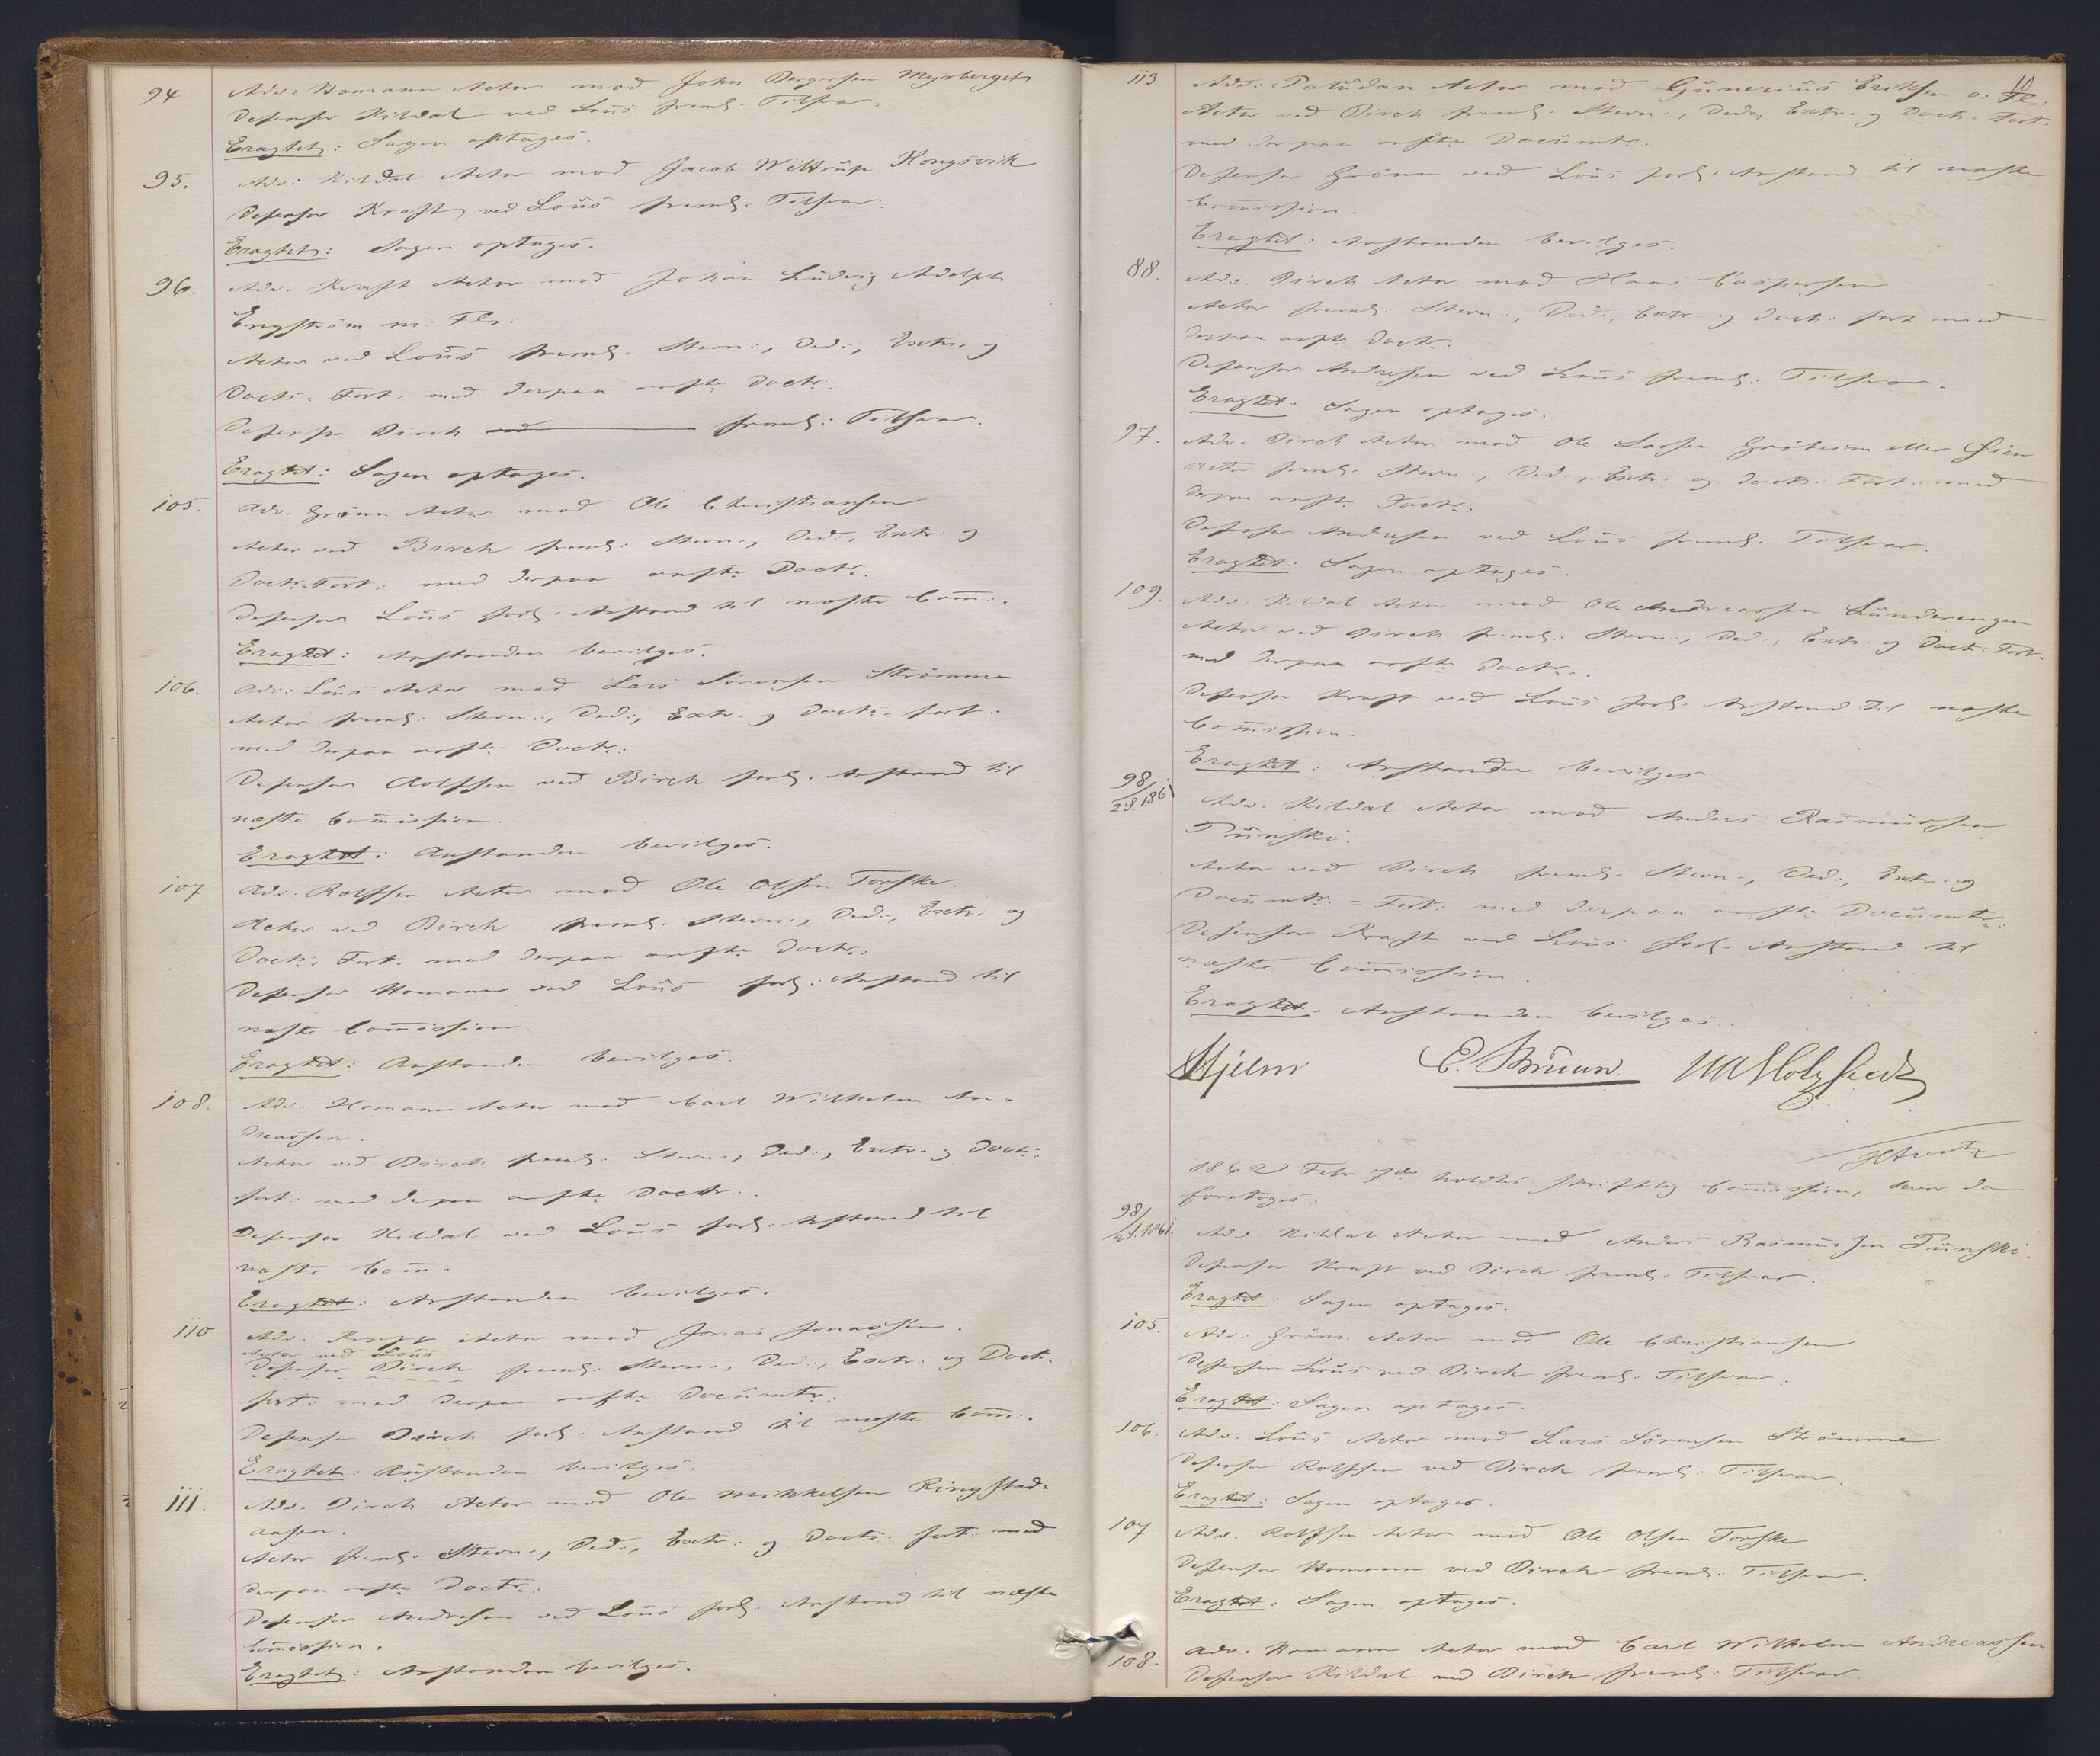 94 Adv: Homann Actor mod John Borgersen Myrberget
Defensor Kildal ved Loüs freml: Tilsvar.
Eragtet: Sagen optages.
95. Adv: Kildal Actor mod Jacob Wittrüp Kongsvik
Defensor Kraft ved Loüs freml: Tilsvar.
Eragtet: Sagen optages.
96. Adv. Kraft Actor mod Johan Lüdvig Adolph
Engström m: Fl:
Actor ved Loüs freml. Stevn:, Ded:, Extr. og
Docts. Fort. med derpaa anfte Doctr.
Defensor Birch ved freml: Tilsvar.
Eragtet: Sagen optages.
105. Adv. Grönn Actor mod Ole Christiansen
Actor ved Birch freml: Stevn:, Ded:, Extr. og
Doctr. Fort. med derpaa anfte Doctr.
Defensor Loüs forl: Anstand til næste Com̅:.
Eragtet: Anstanden bevilges.
106. Adv: Loüs Actor mod Lars Sörensen Strömme
Actor freml: Stevn:, Ded:, Extr. og Docts. fort:
med derpaa anfte Doctr:
Defensor Rolfsen ved Birch forl. Anstand til
næste Com̅ission.
Eragtet: Anstanden bevilges.
107 Adv: Rolfsen Actor mod Ole Olsen Torske.
Actor ved Birch freml. Stevn:, Ded:, Extr. og
Docts. Fort. med derpaa anfte Doctr:
Defensor Homann ved Loüs forl: Anstand til
næste Com̅ission.
Eragtet: Anstanden bevilges.
108. Adv. Homann Actor mod Carl Wilhelm An-
dreassen.
Actor ved Birch freml: Stevn:, Ded:, Extr. og Docts:
fort: med derpaa anfte Doctr:.
Defensor Kildal ved Loüs forl: Anstand til
næste Com̅.
Eragtet: Anstanden bevilges.
110 Adv: Kraft Actor mod Jonas Jonassen.
Actor ved Loüs
Defensor Birch freml: Stevn:, Ded:, Extr: og Doct.
fort: med derpaa anfte Documtr:
Defensor Birch forl: Anstand til næste Com̅:.
Eragtet: Anstanden bevilges.
111. Adv. Birch Actor mod Ole Mikkelsen Ringstad-
aasen.
Actor freml. Stevn:, Ded:, Extr: og Docts: fort: med
derpaa anfte Doctr:
Defensor Andresen ved Loüs forl. Anstand til næste
Com̅ission.
Eragtet: Anstanden bevilges.
10
113. Adv: Palüdan Actor mod Günerius Eriksen o: Fl:
Actor ved Birch freml. Stevn:, Ded:, Extr. og Doct: Fort.
med derpaa anfte Documtr:
Defensor Grönn ved Loüs forl: Anstand til næste
Com̅ission.
Eragtet: Anstanden bevilges.
88. Adv. Birch Actor mod Hans Caspersen
Actor freml: Stevn:, Ded:, Extr: og Docts: fort med
derpaa anfte Doctr:
Defensor Andresen ved Loüs freml: Tilsvar.
Eragtet. Sagen optages.
97. Adv. Birch Actor mod Ole Larsen Gröteim eller Öien
Actor freml. Stevn:, Ded:, Extr: og Docts. Fort: med
derpaa anfte Doctr:
Defensor Andresen ved Loüs freml. Tilsvar.
Eragtet: Sagen optages.
109. Adv. Kildal Actor mod Ole Andreassen Lünderengen
Actor ved Birch freml: Stevn:, Ded:, Extr. og Doct: Fort.
med derpaa anfte Doctr:.
Defensor Kraft ved Loüs forl. Anstand til næste
Com̅ission.
Eragtet: Anstanden bevilges
98/2 S. 1861 Adv. Kildal Actor mod Anders Rasmüssen
Pünski.
Actor ved Birch freml. Stevn:, Ded:, Extr. og
Documtr: = Fort: med derpaa anfte Documtr:
Defensor Kraft ved Loüs forl. Anstand til
næste Com̅ission.
Eragtet. Anstanden bevilges.
Hjelm E. Bruun
1862 Febr 7de holdtes skriftlig Com̅ission, hvor da
foretoges:
98/2 S. 1861. Adv. Kildal Actor mod Anders Rasmüssen Pünski.
Defensor Kraft ved Birch freml: Tilsvar.
Eragtet: Sagen optages.
105. Adv: Grönn Actor mod Ole Christiansen
Defensor Loüs ved Birch freml: Tilsvar.
Eragtet: Sagen optages.
106. Adv. Loüs Actor mod Lars Sörensen Strömme
Defensor Rolfsen ved Birch freml: Tilsvar.
Eragtet: Sagen optages.
107 Adv. Rolfsen Actor mod Ole Olsen Torske
Defensor Homann ved Birch freml: Tilsvar.
Eragtet: Sagen optages.
108. Adv. Homann Actor mod Carl Wilhelm Andreassen
Defensor Kildal ved Birch freml: Tilsvar